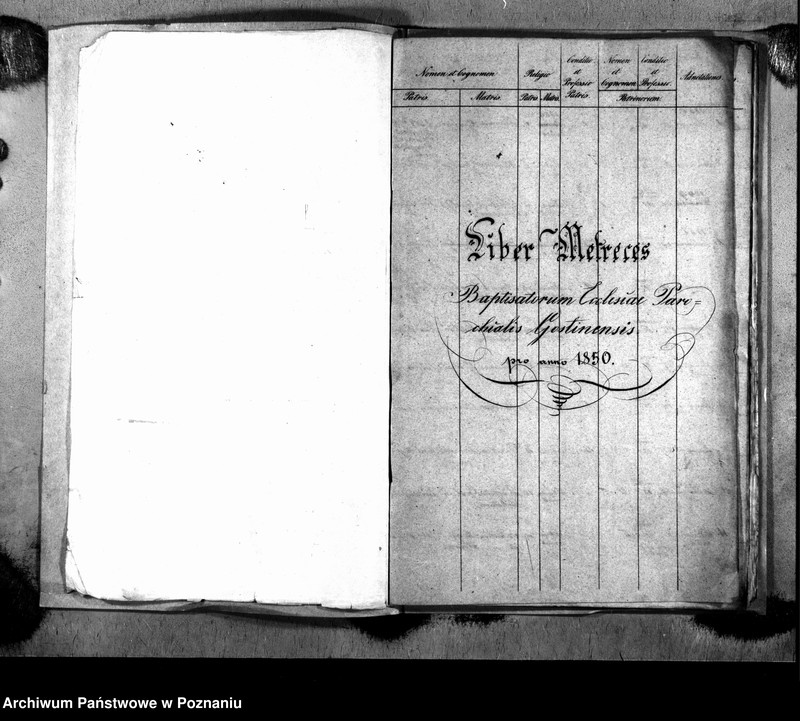 Nomen et Cognomen
Religio
Conditio et Professio Patris
Nomen et Cognomen
Conditio et Professio
Adnotationes
Patris
Matris
Patris
Matris
Patrinorum
Liber Metreces
Baptisatorum Ecclesiae Paro=
chialis Gostinensis
pro anno 1850.
Archiwum Państwowe w Poznaniu